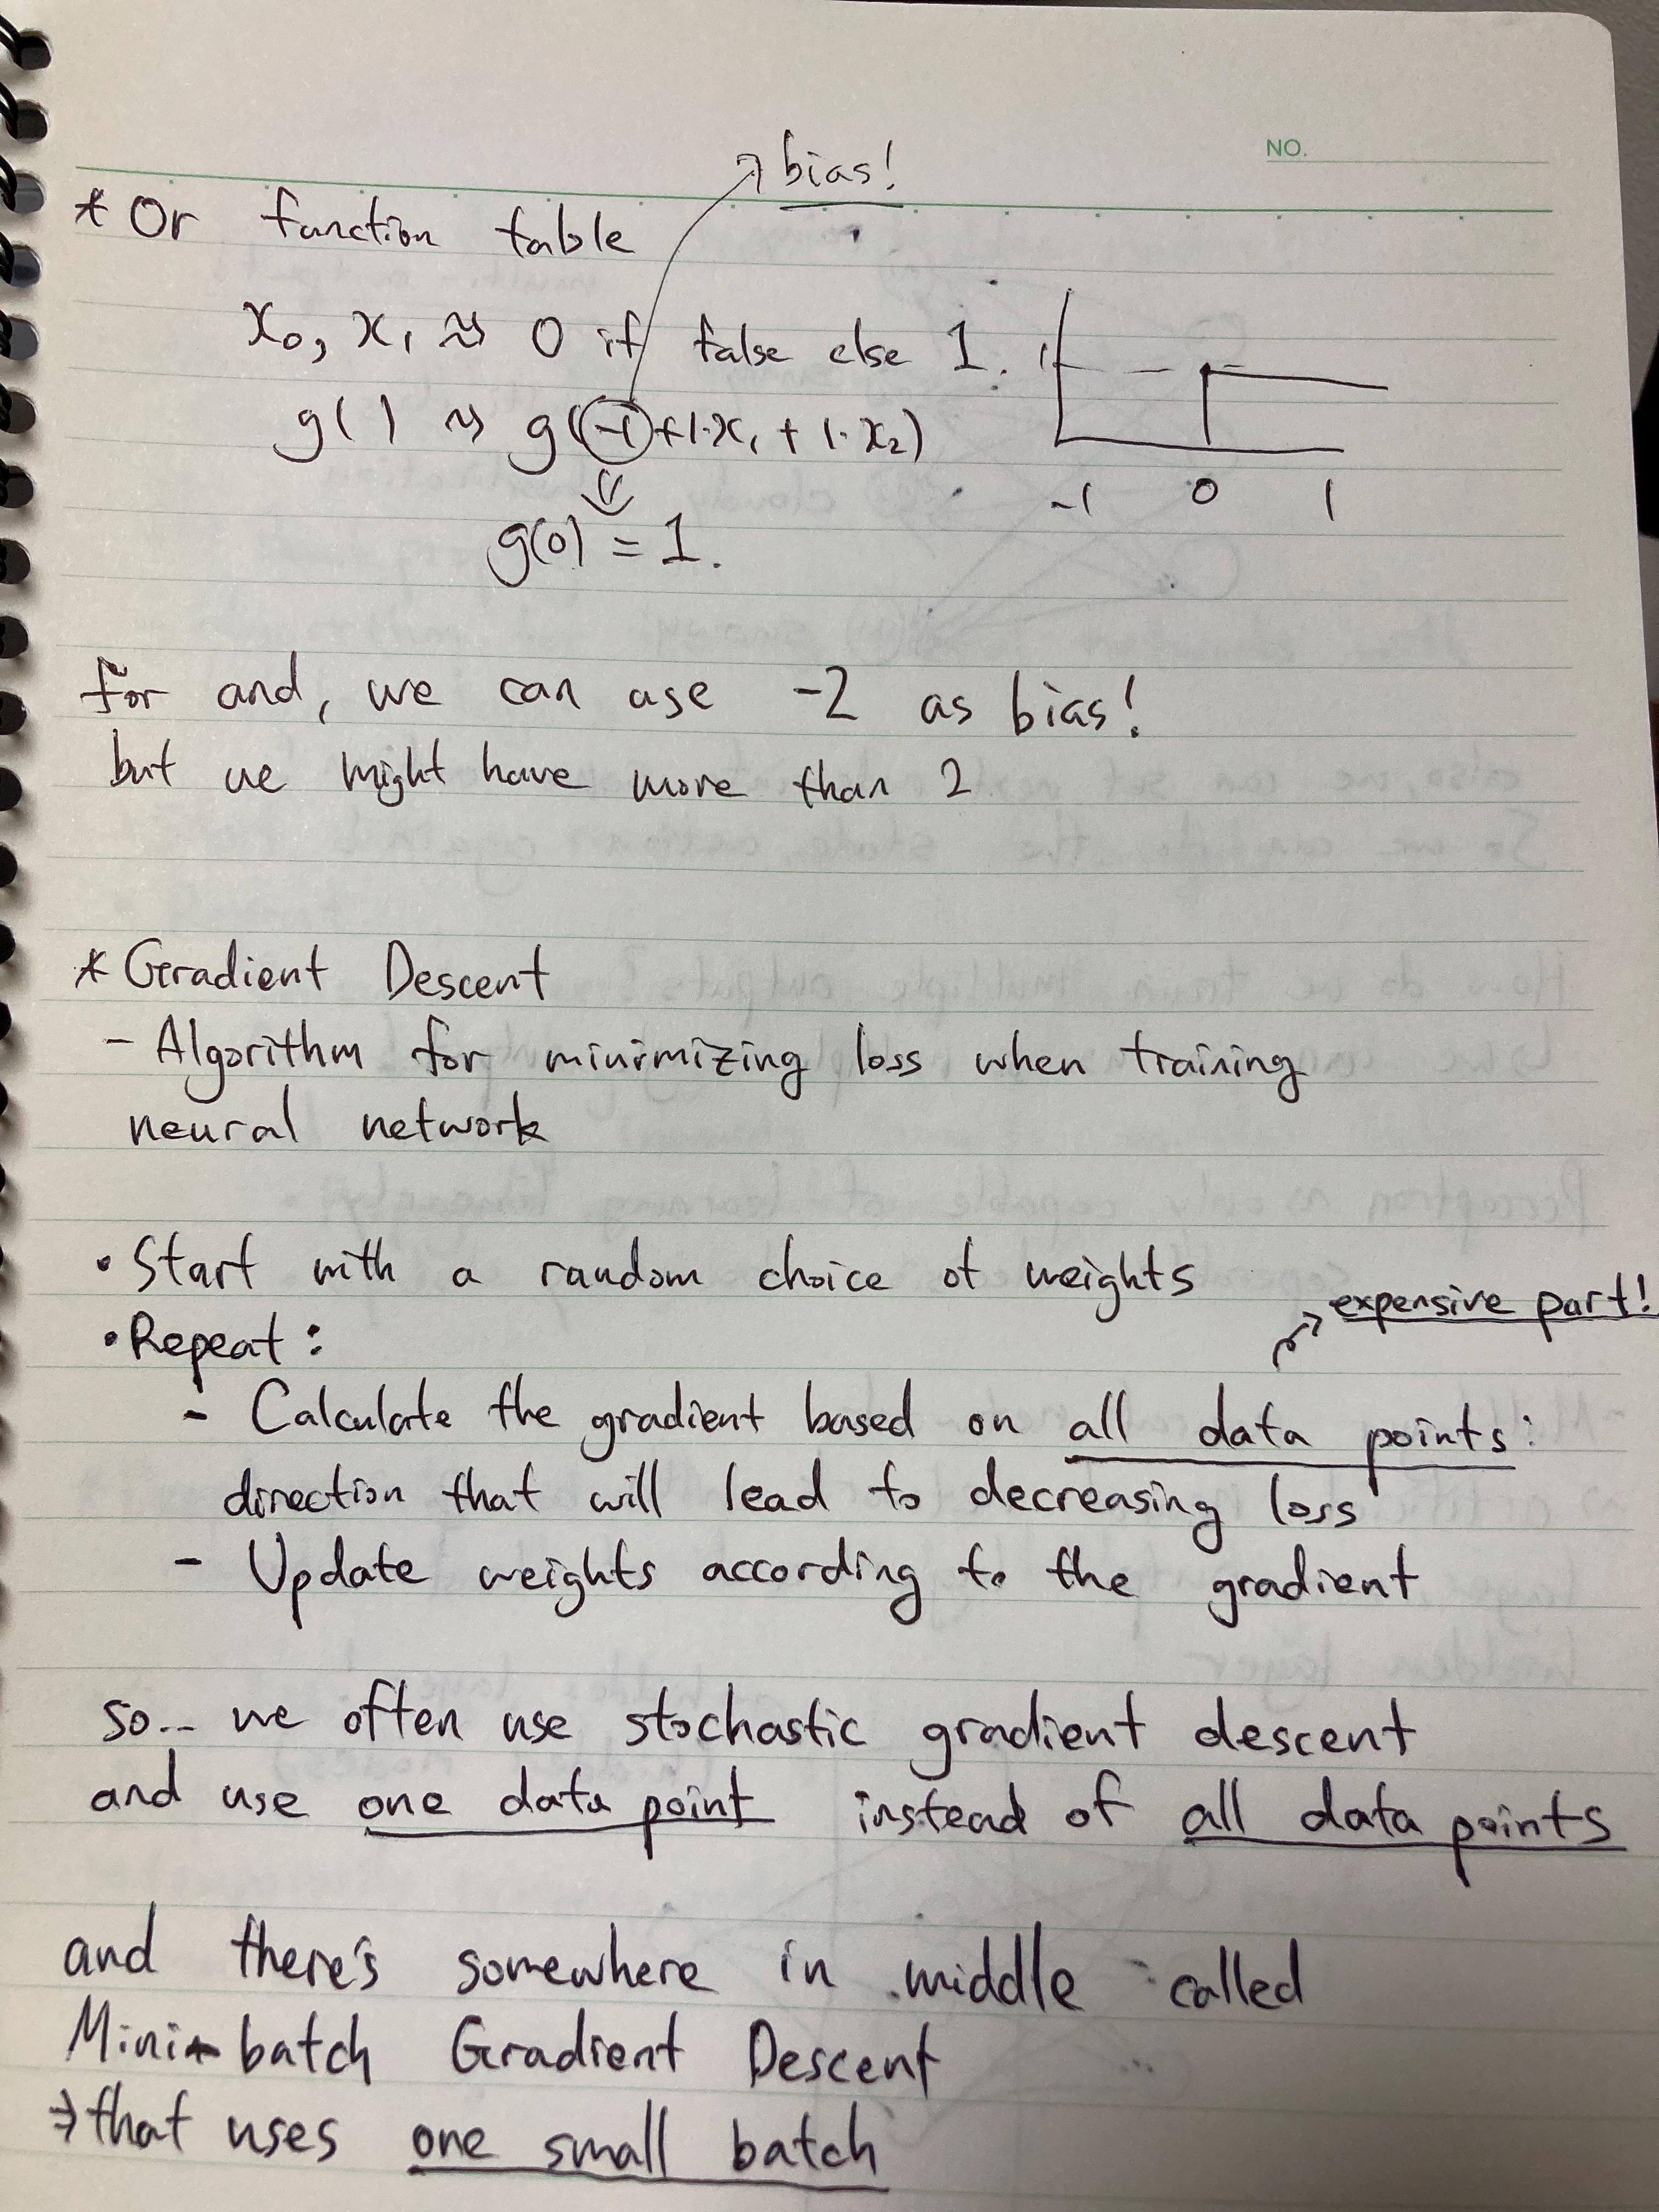 NO.
bias!
* Or function table
x₀, x₁ ≈> 0 if false else 1.
1
g( ) ~> g(-1+1·x₁ + 1·x₂)
-1 0 1
g(0) = 1.
for and, we can use -2 as bias!
but we might have more than 2
* Gradient Descent
- Algorithm for minimizing loss when training
neural network
• Start with a random choice of weights
expensive part!
• Repeat:
- Calculate the gradient based on all data points:
direction that will lead to decreasing loss
- Update weights according to the gradient
so.. we often use stochastic gradient descent
and use one data point instead of all data points
and there's somewhere in middle called
Mini-batch Gradient Descent
⇒ that uses one small batch